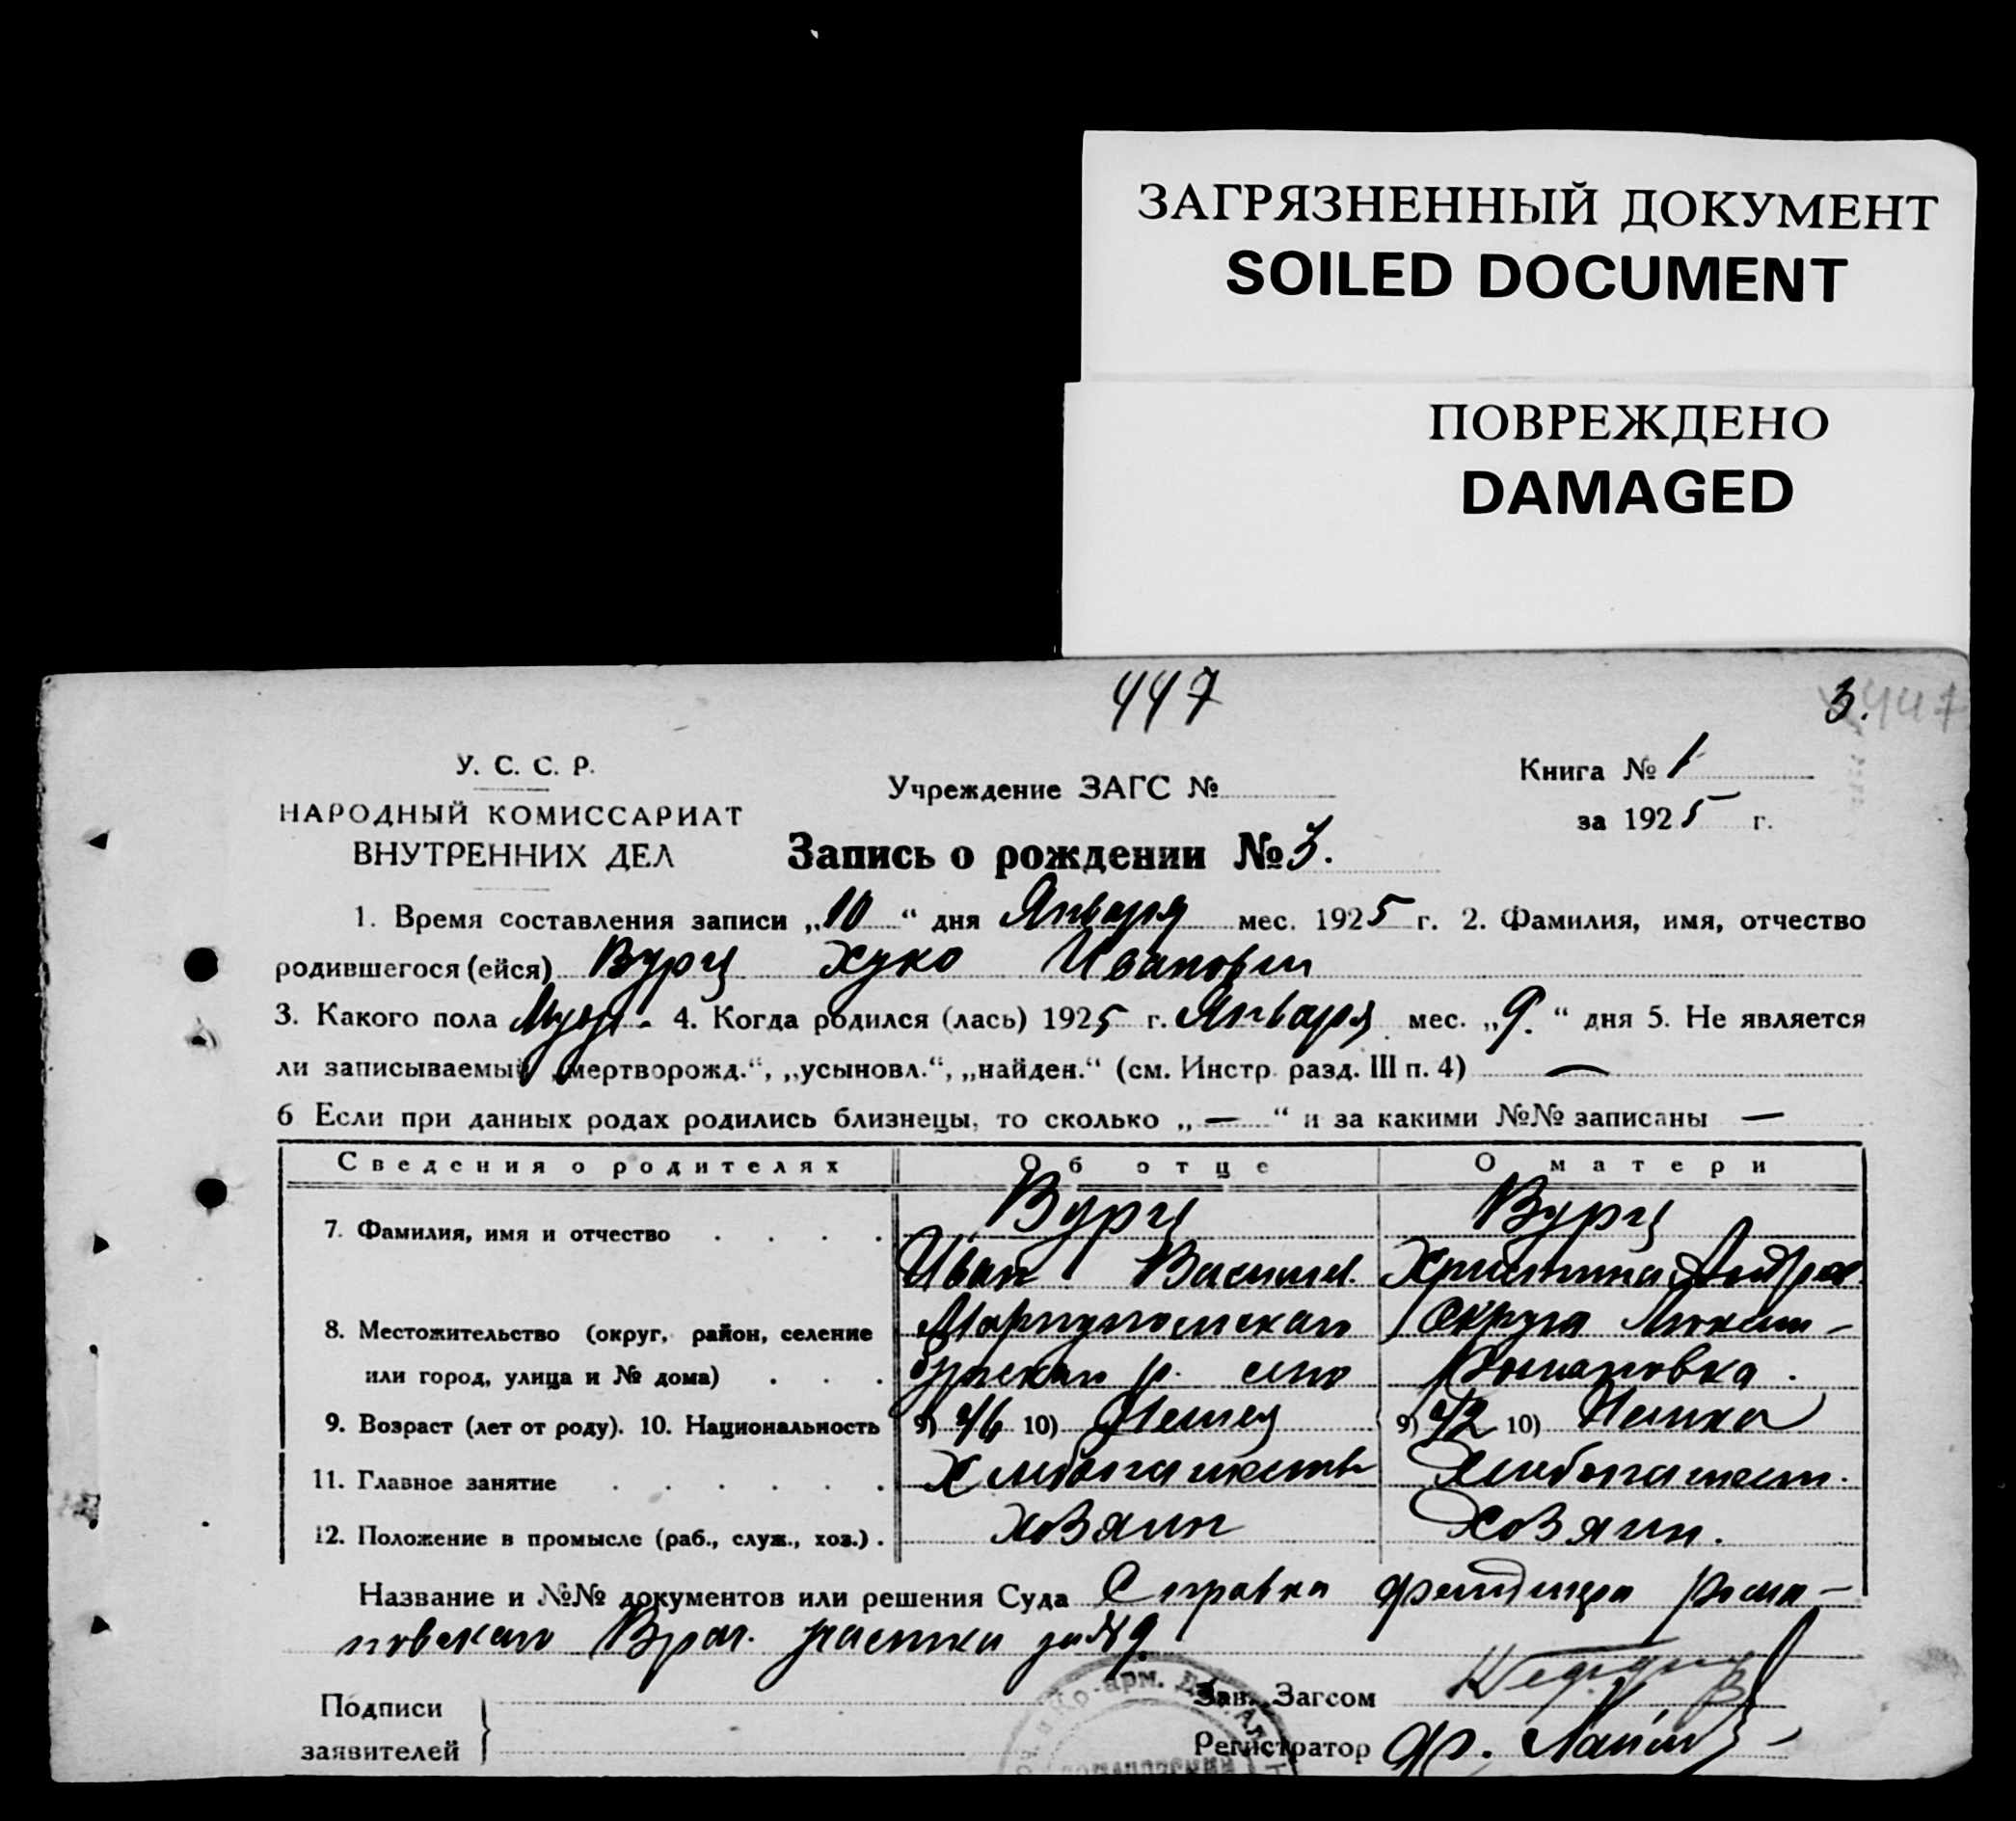 ЗАГРЯЗНЕННЫЙ ДОКУМЕНТ
SOILED DOCUMENT
ПОВРЕЖДЕНО
DAMAGED
447
3. 447
У. С. С. Р.
НАРОДНЫЙ КОМИССАРИАТ
ВНУТРЕННИХ ДЕЛ
Учреждение ЗАГС №
Книга № 1
за 1925 г.
Запись о рождении № 3.
1. Время составления записи „10“ дня Января мес. 1925 г. 2. Фамилия, имя, отчество
родившегося (ейся) Вурц Хуко Иванович
3. Какого пола Муж. 4. Когда родился (лась) 1925 г. Января мес. „9.“ дня 5. Не является
ли записываемый „мертворожд.“, „усыновл.“, „найден.“ (см. Инстр. разд. III п. 4) —
6 Если при данных родах родились близнецы, то сколько „—“ и за какими №№ записаны —
Сведения о родителях Об отце О матери
7. Фамилия, имя и отчество Вурц Вурц
Иван Васильев. Христина Андрев.
8. Местожительство (округ, район, селение Мариупольскаго Округа Люксем-
или город, улица и № дома) бургскаго р. село Романовка.
9. Возраст (лет от роду). 10. Национальность 9) 46 10) Немец 9) 42 10) Немка
11. Главное занятие Хлебопашеств Хлебопашест.
12. Положение в промысле (раб., служ., хоз.) хозяин Хозяин.
Название и №№ документов или решения Суда Справка фельдшера Рома-
новскаго Врач. участка за № 9
Подписи
заявителей
Зав. Загсом
Регистратор